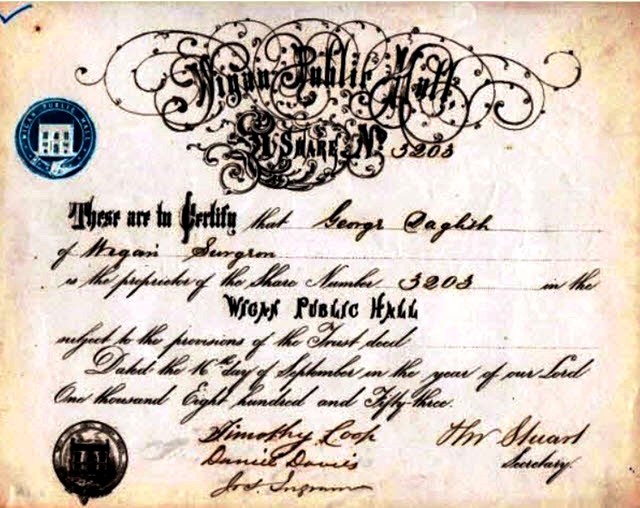 Wigan Public Hall.
WIGAN PUBLIC HALL
£1 SHARE No. 3203
These are to Certify that George Daglish
of Wigan Surgeon
is the proprietor of the Share Number 3203 in the
WIGAN PUBLIC HALL
subject to the provisions of the Trust deed
Dated the 16th day of September in the year of our Lord
One thousand Eight hundred and Fifty-three.
Timothy Coop ThW Stuart
Daniel Davies Secretary.
Jos. Ingram